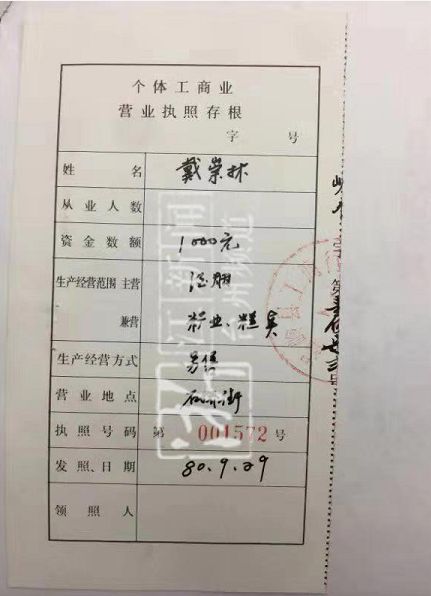 个体工商业
营业执照存根
字 号
姓名 戴崇林
从业人数
资金数额 1000元
生产经营范围 主营
兼营
生产经营方式 另售
营业地点
执照号码 第 001572 号
发照、日期 80.9.29
领照人
浙江新闻
台州频道